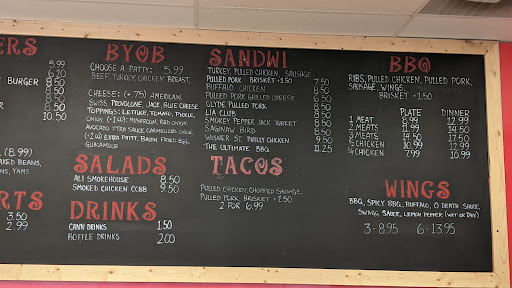 ERS
5.99
6.20
BURGER 8.50
9.50
8.50
10.50
(8.99)
BAKED BEANS,
YAMS
RTS
3.50
2.99
BYOB
CHOOSE A PATTY: 5.99
BEEF, TURKEY, CHICKEN BREAST,
CHEESE: (+.75) AMERICAN,
SWISS, PROVOLONE, JACK, BLUE CHEESE
TOPPINGS: LETTUCE, TOMATO, PICKLE,
ONION MUSHROOM, RED ONION,
AVOCADO
EXTRA PATTY, BACON, FRIED EGG,
GUACAMOLE
SALADS
ALI SMOKEHOUSE 8.50
SMOKED CHICKEN COBB 9.50
DRINKS
CANN DRINKS 1.50
BOTTLE DRINKS 2.00
SANDWI
TURKEY, PULLED CHICKEN, SAUSAGE
PULLED PORK BRISKET +1.50 7.50
BUFFALO CHICKEN 8.50
PULLED PORK GRILLED CHEESE 8.50
CLYDE PULLED PORK
LIA CLUB
SMOKEY PEPPER JACK TURKEY
SAGINAW BIRD
WISNER ST. PHILLY CHICKEN 9.50
THE ULTIMATE BBQ 11.25
TACOS
PULLED CHICKEN, CHOPPED SAUSAGE,
PULLED PORK, BRISKET +1.50
2 FOR 6.99
BBQ
RIBS, PULLED CHICKEN, PULLED PORK,
SAUSAGE, WINGS,
BRISKET +1.50
PLATE DINNER
1 MEAT 8.99 12.99
2 MEATS 11.99 14.50
3 MEATS 14.50 17.50
1/2 CHICKEN 10.99 12.99
1/4 CHICKEN 7.99 10.99
WINGS
BBQ, SPICY BBQ, BUFFALO, O DEATH SAUCE,
SWINIG SAUCE, LEMON PEPPER (WET OR DRY)
3 - 8.95 6 - 13.95